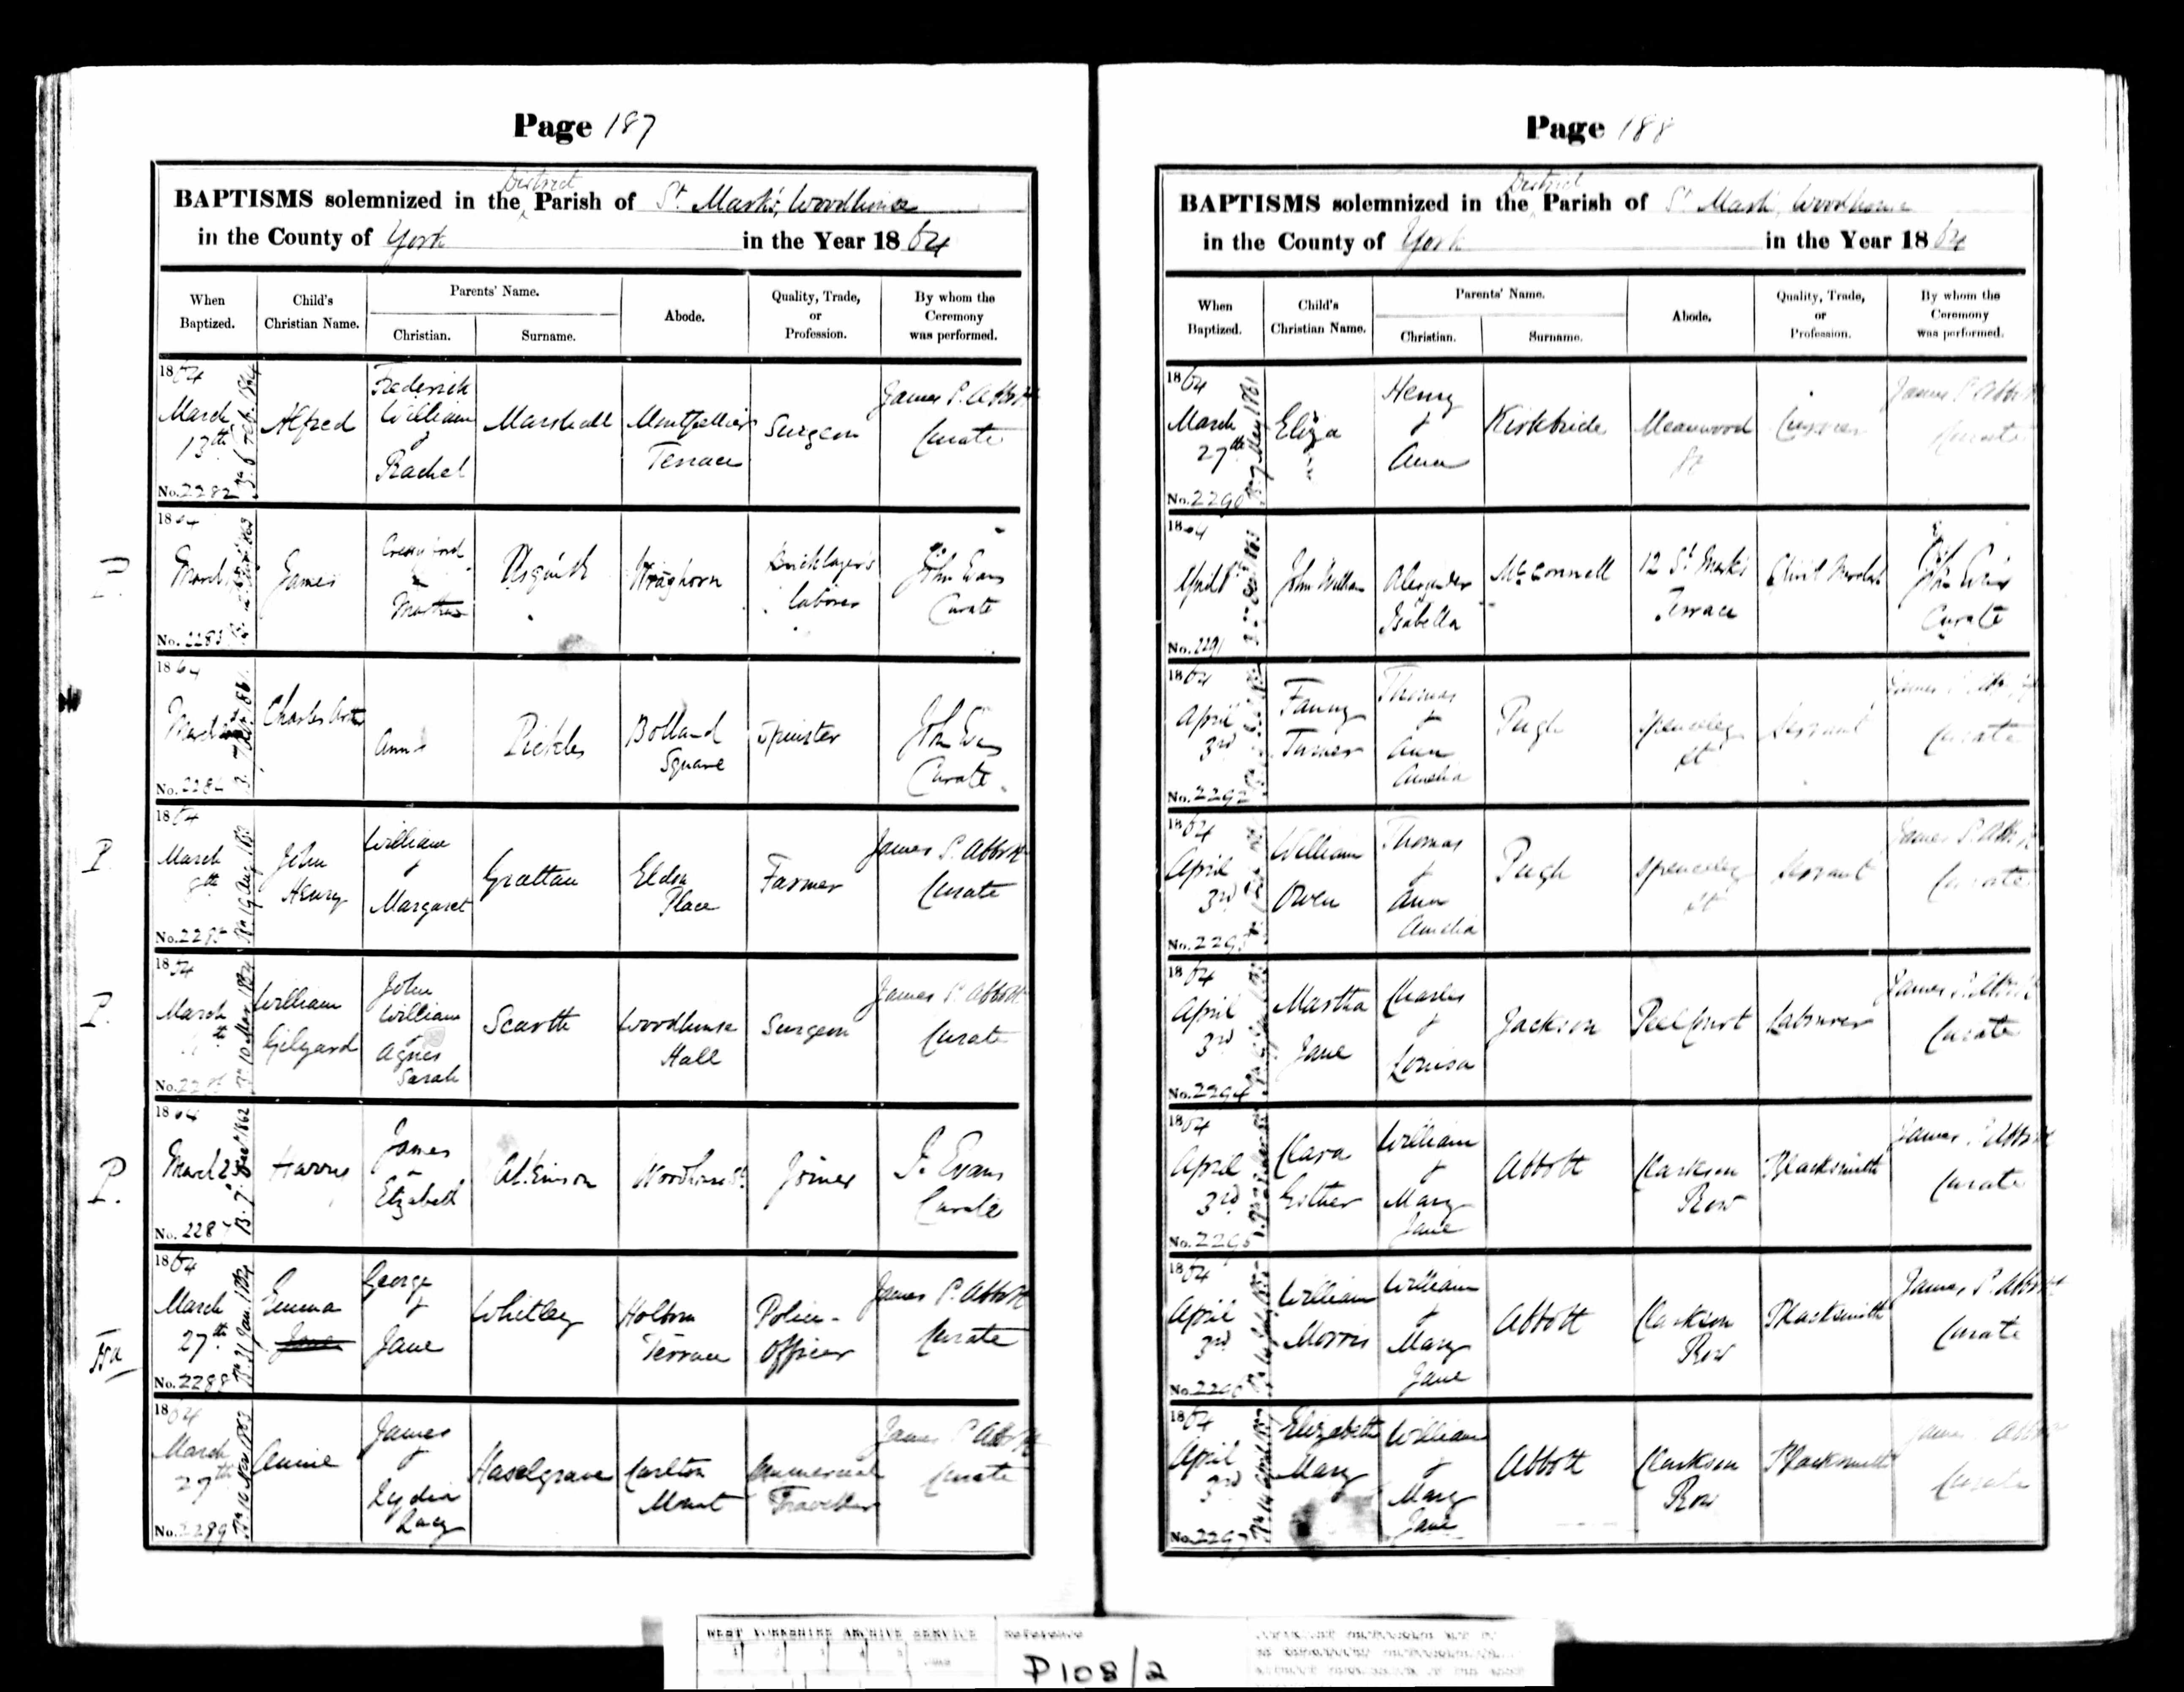 Page 187
BAPTISMS solemnized in the District Parish of St. Mark's, Woodhouse
in the County of York in the Year 1864
When Baptized.
Child's Christian Name.
Parents' Name.
Christian.
Surname.
Abode.
Quality, Trade, or Profession.
By whom the Ceremony was performed.
1864 March 13th No. 2282
Alfred
Frederick William & Rachel
Marshall
Montpellier Terrace
Surgeon
James P. Abbott Curate
1864 March
James
Asquith
Wraghorn
Bricklayer's laborer
John Evans Curate
1864 March
Charles
Ann
Pickles
Bolland Square
Spinster
John Evans Curate
P.
1864 March
John Henry
William & Margaret
Grattan
Eldon Place
Farmer
James P. Abbott Curate
P.
1864 March
William Gilyard
John William & Agnes Sarah
Scarth
Woodhouse Hall
Surgeon
James P. Abbott Curate
P.
1864 March No. 2287
Harry
James & Elizabeth
Atkinson
Woodhouse St.
Joiner
J. Evans Curate
1864 March 27th No. 2288
Bn 31 Jan. 1864
Emma Jane
George & Jane
Whitley
Holborn Terrace
Police-Officer
James P. Abbott Curate
1864 March 27th No. 2289
Annie
James & Lydia Lucy
Haselgrave
Carlton Mount
Commercial Traveller
James P. Abbott Curate
Page 188
BAPTISMS solemnized in the District Parish of St. Mark's, Woodhouse
in the County of York in the Year 1864
When Baptized.
Child's Christian Name.
Parents' Name.
Christian.
Surname.
Abode.
Quality, Trade, or Profession.
By whom the Ceremony was performed.
1864 March 27th No. 2290
Eliza
Henry & Ann
Kirkbride
Meanwood St
Currier
James P. Abbott Curate
1864 April No. 2291
John William
Alexander Isabella
McConnell
12 St Mark's Terrace
John Evans Curate
1864 April 3rd No. 2292
Fanny Turner
Thomas & Ann Amelia
Pugh
Spenceley St
Servant
James P. Abbott Curate
1864 April 3rd No. 2293
William Owen
Thomas & Ann Amelia
Pugh
Spenceley St
Servant
James P. Abbott Curate
1864 April 3rd No. 2294
Martha Jane
Charles & Louisa
Jackson
Peel Court
Labourer
James P. Abbott Curate
1864 April 3rd No. 2295
Clara Esther
William & Mary Jane
Abbott
Clarkson Row
Blacksmith
James P. Abbott Curate
1864 April 3rd No. 2296
William Morris
William & Mary Jane
Abbott
Clarkson Row
Blacksmith
James P. Abbott Curate
1864 April 3rd No. 2297
Elizabeth Mary
William & Mary Jane
Abbott
Clarkson Row
Blacksmith
James P. Abbott Curate
WEST YORKSHIRE ARCHIVE SERVICE
Reference
P108/2